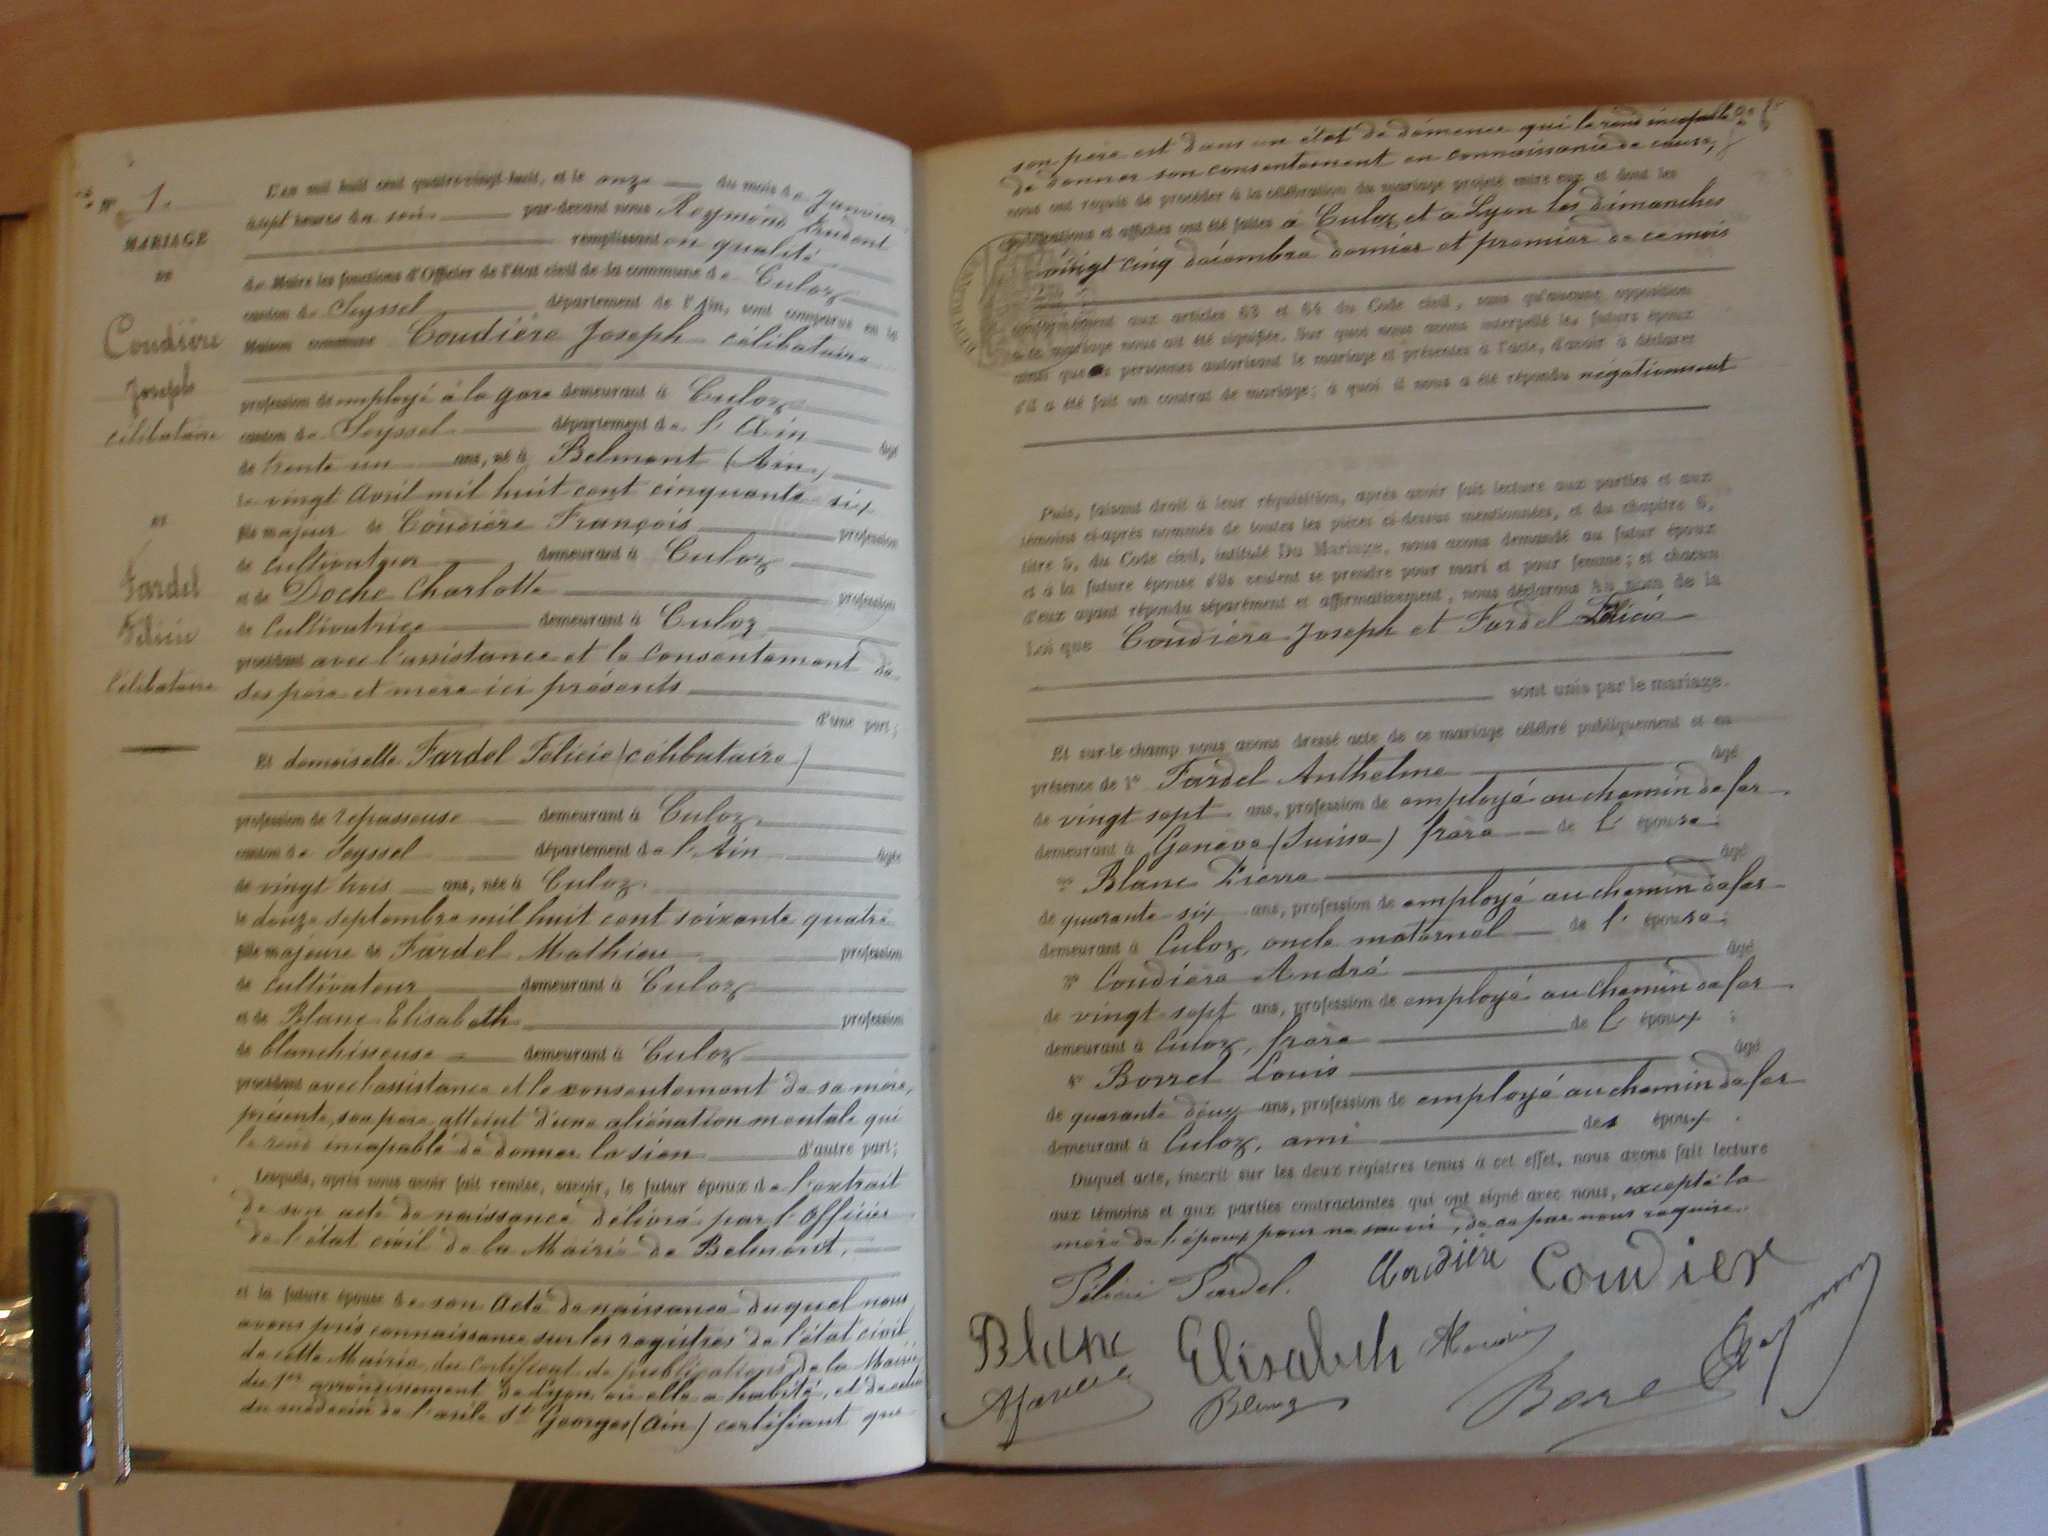 N° 1.
MARIAGE
DE
Coudière
Joseph
célibataire
ET
Fardel
Félicie
célibataire
L'an mil huit cent quatre-vingt-huit, et le onze du mois de Janvier
à sept heures du soir par-devant nous Reymond Prudent
remplissant en qualité
de Maire les fonctions d'Officier de l'état civil de la commune de Culoz
canton de Seyssel département de l'Ain, sont comparus en la
Maison commune Coudière Joseph célibataire
profession de employé à la gare demeurant à Culoz
canton de Seyssel département de l'Ain âgé
de trente un ans, né à Belmont (Ain)
le vingt Avril mil huit cent cinquante six
fils majeur de Coudière François profession
de cultivateur demeurant à Culoz
et de Doche Charlotte profession
de Cultivatrice demeurant à Culoz
procédant avec l'assistance et le consentement de
ses père et mère ici présents
d'une part;
Et demoiselle Fardel Félicie (célibataire)
profession de repasseuse demeurant à Culoz
canton de Seyssel département de l'Ain âgée
de vingt trois ans, née à Culoz
le douze septembre mil huit cent soixante quatre
fille majeure de Fardel Mathieu profession
de cultivateur demeurant à Culoz
et de Blanc Elisabeth profession
de blanchisseuse demeurant à Culoz
procédant avec l'assistance et le consentement de sa mère,
présente, son père atteint d'une aliénation mentale qui
le rend incapable de donner le sien d'autre part;
Lesquels, après nous avoir fait remise, savoir, le futur époux de l'extrait
de son acte de naissance délivré par l'Officier
de l'état civil de la Mairie de Belmont,
et la future épouse de son acte de naissance duquel nous
avons pris connaissance sur les registres de l'état civil
de cette Mairie, du certificat de publications de la Mairie
du 1er arrondissement de Lyon où elle a habité, et de celui
du médecin de l'asile St Georges (Ain) certifiant que
son père est dans un état de démence qui le rend incapable
de donner son consentement en connaissance de cause,
nous ont requis de procéder à la célébration du mariage projeté entre eux et dont les
publications et affiches ont été faites à Culoz et à Lyon les dimanches
vingt cinq décembre dernier et premier de ce mois
conformément aux articles 63 et 64 du Code civil, sans qu'aucune opposition
à ce mariage nous ait été signifiée. Sur quoi nous avons interpellé les futurs époux
ainsi que les personnes autorisant le mariage et présentes à l'acte, d'avoir à déclarer
s'il a été fait un contrat de mariage; à quoi il nous a été répondu négativement
Puis, faisant droit à leur réquisition, après avoir fait lecture aux parties et aux
témoins ci-après nommés de toutes les pièces ci-dessus mentionnées, et du chapitre 6,
titre 5, du Code civil, intitulé Du Mariage, nous avons demandé au futur époux
et à la future épouse s'ils veulent se prendre pour mari et pour femme; et chacun
d'eux ayant répondu séparément et affirmativement, nous déclarons Au nom de la
Loi que Coudière Joseph et Fardel Félicie
sont unis par le mariage.
Et sur-le-champ nous avons dressé acte de ce mariage célébré publiquement et en
présence de 1° Fardel Anthelme âgé
de vingt sept ans, profession de employé au chemin de fer
demeurant à Genève (Suisse) frère de l'épouse;
2° Blanc Pierre âgé
de quarante six ans, profession de employé au chemin de fer
demeurant à Culoz, oncle maternel de l'épouse;
3° Coudière André âgé
de vingt sept ans, profession de employé au chemin de fer
demeurant à Culoz, frère de l'époux;
4° Borrel Louis âgé
de quarante deux ans, profession de employé au chemin de fer
demeurant à Culoz, ami des époux.
Duquel acte, inscrit sur les deux registres tenus à cet effet, nous avons fait lecture
aux témoins et aux parties contractantes qui ont signé avec nous, excepté la
mère de l'époux pour ne savoir, de ce par nous requise.
Félicie Fardel. Coudière Coudier
Blanc Elisabeth
Blanc